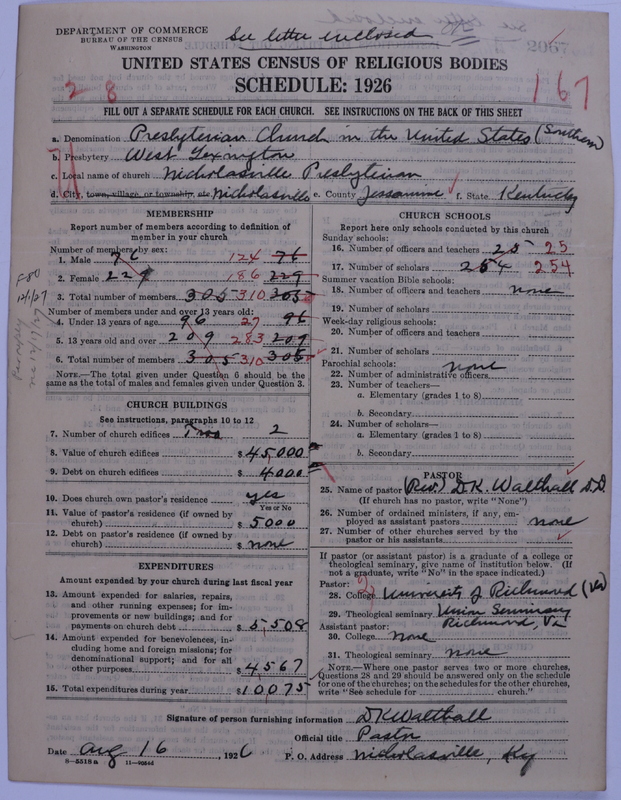 DEPARTMENT OF COMMERCE
BUREAU OF THE CENSUS
WASHINGTON
See letter enclosed
2067
UNITED STATES CENSUS OF RELIGIOUS BODIES
SCHEDULE: 1926
2 8
167
FILL OUT A SEPARATE SCHEDULE FOR EACH CHURCH. SEE INSTRUCTIONS ON THE BACK OF THIS SHEET
a. Denomination Presbyterian Church in the United States (Southern)
b. Presbytery West Lexington
c. Local name of church Nicholasville Presbyterian
d. City, town, village, or township, etc Nicholasville e. County Jessamine f. State Kentucky
MEMBERSHIP
Report number of members according to definition of
member in your church
Number of members by sex:
1. Male 76 124 76
2. Female 229 186 229
3. Total number of members 305 310 305
Number of members under and over 13 years old:
4. Under 13 years of age 96 27 96
5. 13 years old and over 209 283 209
6. Total number of members 305 310 305
NOTE.—The total given under Question 6 should be the
same as the total of males and females given under Question 3.
CHURCH BUILDINGS
See instructions, paragraphs 10 to 12
7. Number of church edifices Two 2
8. Value of church edifices $ 45,000
9. Debt on church edifices $ 4000
10. Does church own pastor's residence yes
Yes or No
11. Value of pastor's residence (if owned by
church) $ 5000
12. Debt on pastor's residence (if owned by
church) $ none
EXPENDITURES
Amount expended by your church during last fiscal year
13. Amount expended for salaries, repairs,
and other running expenses; for im-
provements or new buildings; and for
payments on church debt $ 5,508
14. Amount expended for benevolences, in-
cluding home and foreign missions; for
denominational support; and for all
other purposes $ 4567
15. Total expenditures during year $ 10,075
CHURCH SCHOOLS
Report here only schools conducted by this church
Sunday schools:
16. Number of officers and teachers 25 25
17. Number of scholars 254 254
Summer vacation Bible schools:
18. Number of officers and teachers none
19. Number of scholars
Week-day religious schools:
20. Number of officers and teachers
21. Number of scholars
Parochial schools: none
22. Number of administrative officers
23. Number of teachers—
a. Elementary (grades 1 to 8)
b. Secondary
24. Number of scholars—
a. Elementary (grades 1 to 8)
b. Secondary
PASTOR
25. Name of pastor (Rev.) D.K. Walthall D.D.
(If church has no pastor, write "None")
26. Number of ordained ministers, if any, em-
ployed as assistant pastors none
27. Number of other churches served by the
pastor or his assistants
If pastor (or assistant pastor) is a graduate of a college or
theological seminary, give name of institution below. (If
not a graduate, write "No" in the space indicated.)
Pastor:
28. College University of Richmond (Va)
29. Theological seminary Union Seminary
Richmond, Va
Assistant pastor:
30. College none
31. Theological seminary none
NOTE.—Where one pastor serves two or more churches,
Questions 28 and 29 should be answered only on the schedule
for one of the churches; on the schedules for the other churches,
write "See schedule for church."
Signature of person furnishing information DK Walthall
Official title Pastor
Date Aug 16, 1926 P. O. Address Nicholasville, Ky
8—5518 a